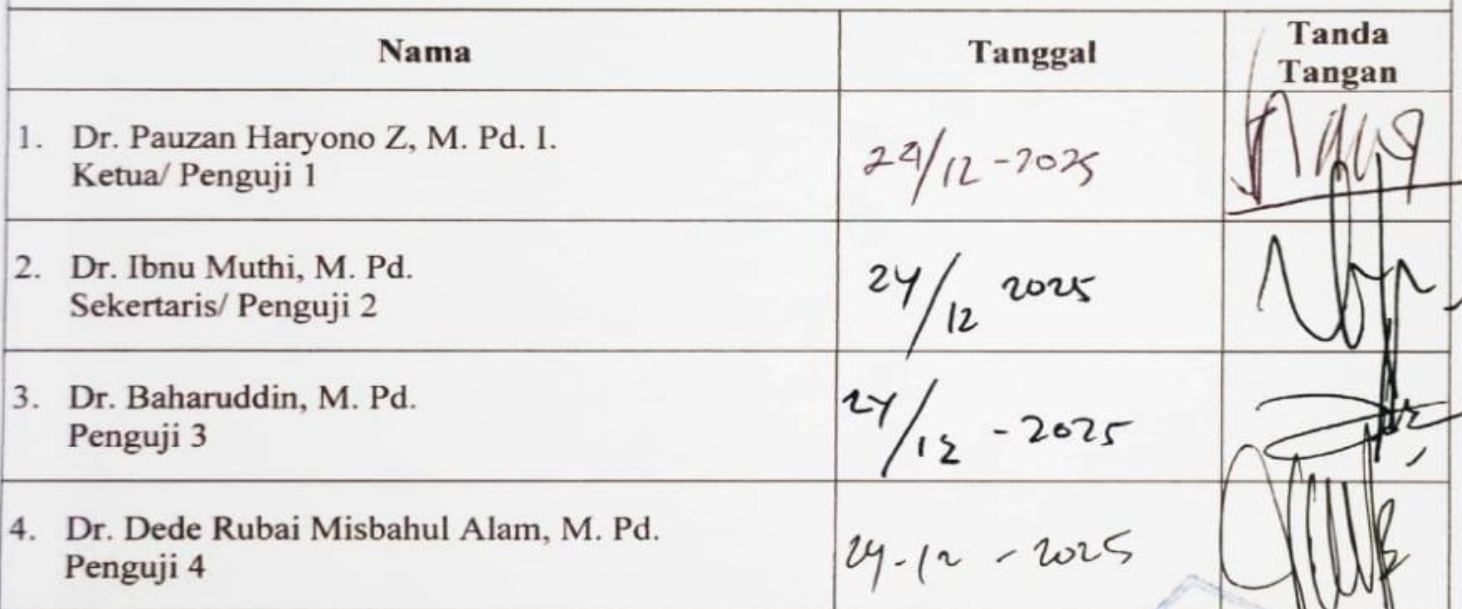 Nama Tanggal Tanda
Tangan
1. Dr. Pauzan Haryono Z, M. Pd. I.
Ketua/ Penguji 1
24/12 - 2025
2. Dr. Ibnu Muthi, M. Pd.
Sekertaris/ Penguji 2
24/12 2025
3. Dr. Baharuddin, M. Pd.
Penguji 3
24/12 - 2025
4. Dr. Dede Rubai Misbahul Alam, M. Pd.
Penguji 4
24-12 - 2025